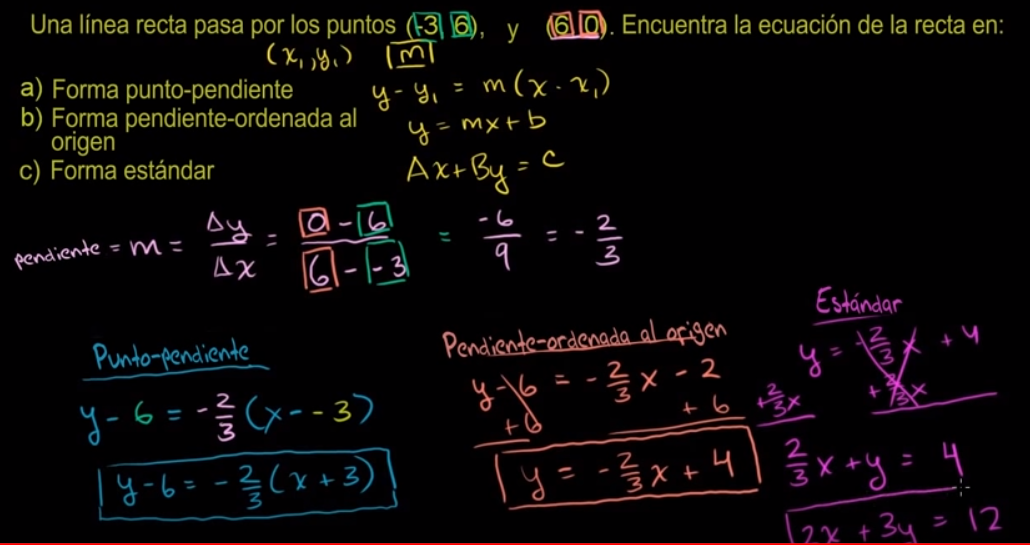 Una línea recta pasa por los puntos (-3 6), y (6 0). Encuentra la ecuación de la recta en:
(x₁, y₁) m
a) Forma punto-pendiente y - y₁ = m(x - x₁)
b) Forma pendiente-ordenada al origen y = mx + b
c) Forma estándar Ax + By = C
pendiente = m = Δy/Δx = (0 - 6)/(6 - -3) = -6/9 = -2/3
Punto-pendiente
y - 6 = -2/3 (x - -3)
y - 6 = -2/3 (x + 3)
Pendiente-ordenada al origen
y - 6 = -2/3 x - 2
+ 6 + 6
y = -2/3 x + 4
Estándar
y = -2/3 x + 4
+2/3 x + 2/3 x
2/3 x + y = 4
2x + 3y = 12